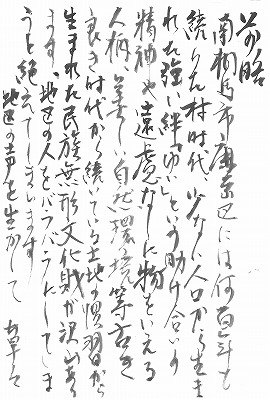 前略
南相馬市鹿島区には何百年も
続いた村時代、少ない人口から生ま
れた強い絆「ゆい」という助け合いの
精神や遠慮なしに物をいえる
人柄、美しい自然環境等古き
良き時代から続いている土地の慣習から
生まれた民族無形文化財が沢山あり
ます、地区の人をバラバラにしてしま
うと絶えてしまいます
地区の声を生かして 草々